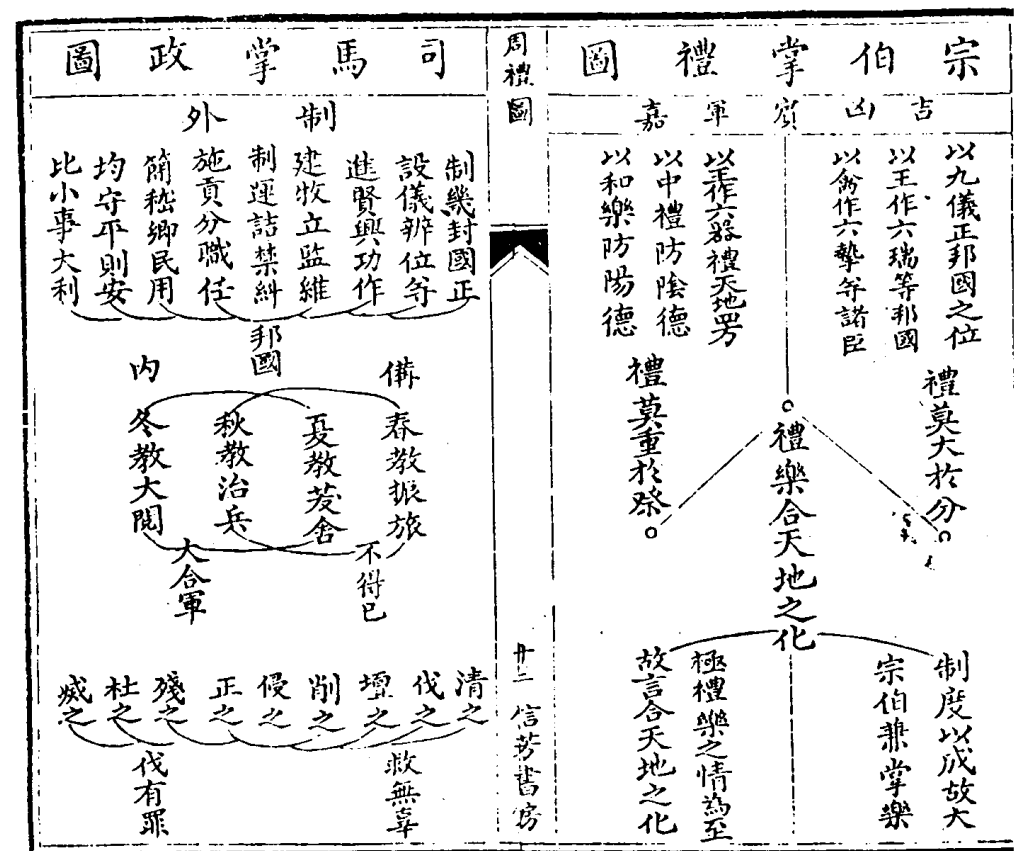 宗伯掌禮圖
吉凶賓軍嘉
以九儀正邦國之位
以玉作六瑞等邦國
以禽作六摯等諸臣
以玉作六器禮天地四方
以中禮防陰德
以和樂防陽德
禮莫大於分
禮樂合天地之化
禮莫重於祭
制度以成故大
宗伯兼掌樂
極禮樂之情為至
故言合天地之化
周禮圖
廿二
信芳書房
司馬掌政圖
制外
制畿封國正
設儀辨位等
進賢興功作
建牧立監維
制運詰禁糾
施貢分職任
簡嵇鄉民用
均守平則安
比小事大利
邦國
備內
春教振旅
夏教茇舍
秋教治兵
冬教大閱
不得已
大合軍
清之
伐之
壇之
削之
侵之
正之
殘之
杜之
滅之
救無辜
伐有罪